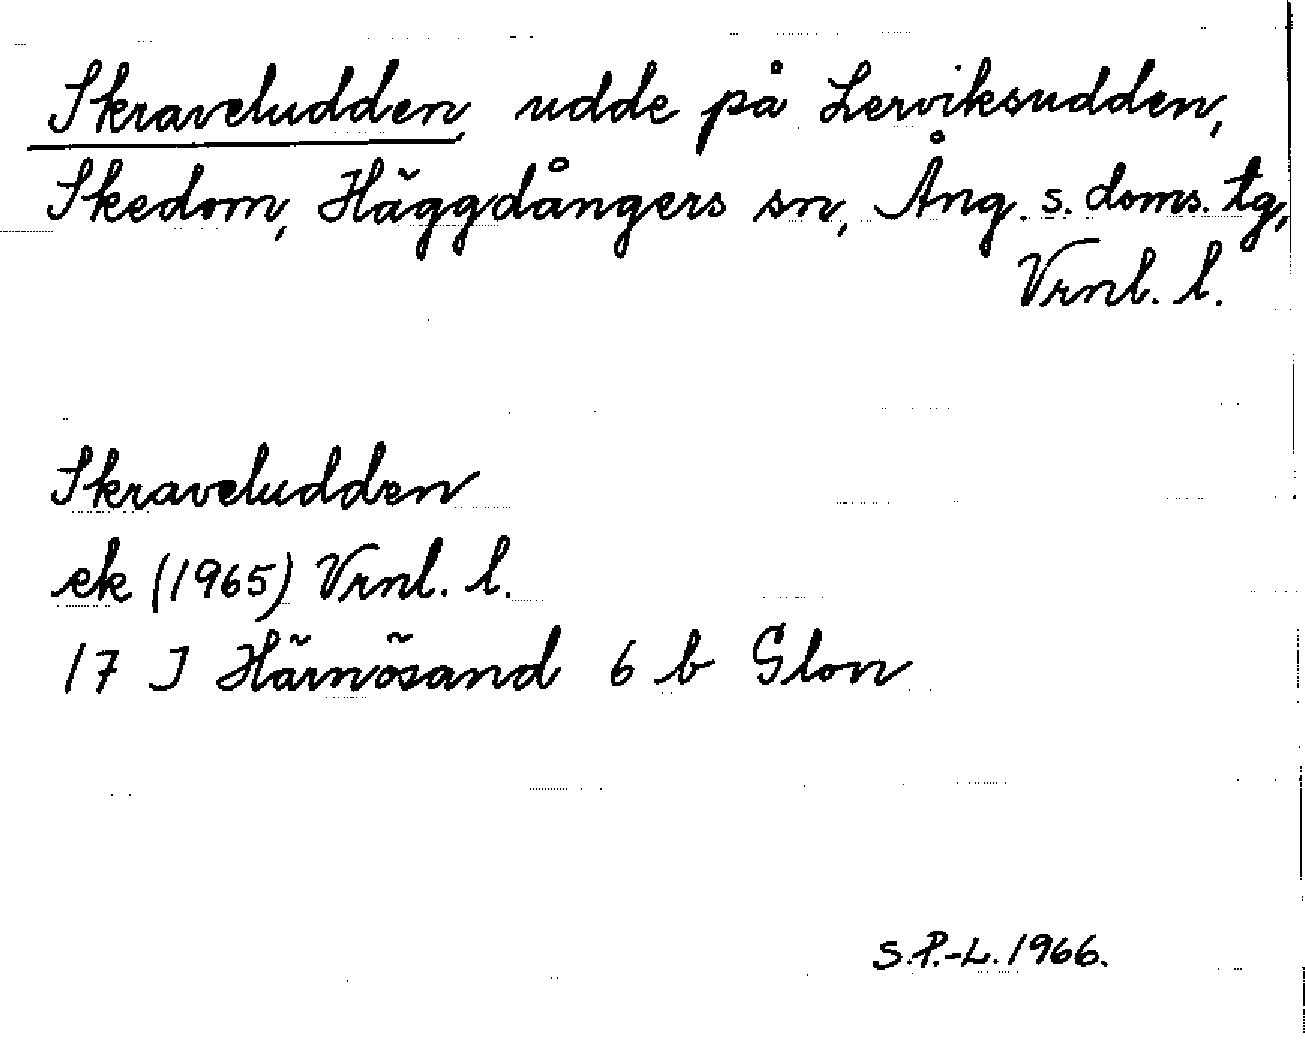 Skraveludden, udde på Lerviksudden,
Skedom, Häggdångers sn, Ång. s. doms. tg,
Vrnl. l.
Skraveludden
ek (1965) Vrnl. l.
17 J Härnösand 6 b Glon
S.P.-L. 1966.